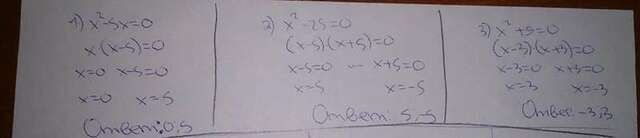 1) x²-5x=0
x(x-5)=0
x=0 x-5=0
x=0 x=5
Ответ: 0,5
2) x²-25=0
(x-5)(x+5)=0
x-5=0 x+5=0
x=5 x=-5
Ответ: 5,-5
3) x²+9=0
(x-3)(x+3)=0
x-3=0 x+3=0
x=3 x=-3
Ответ -3,3